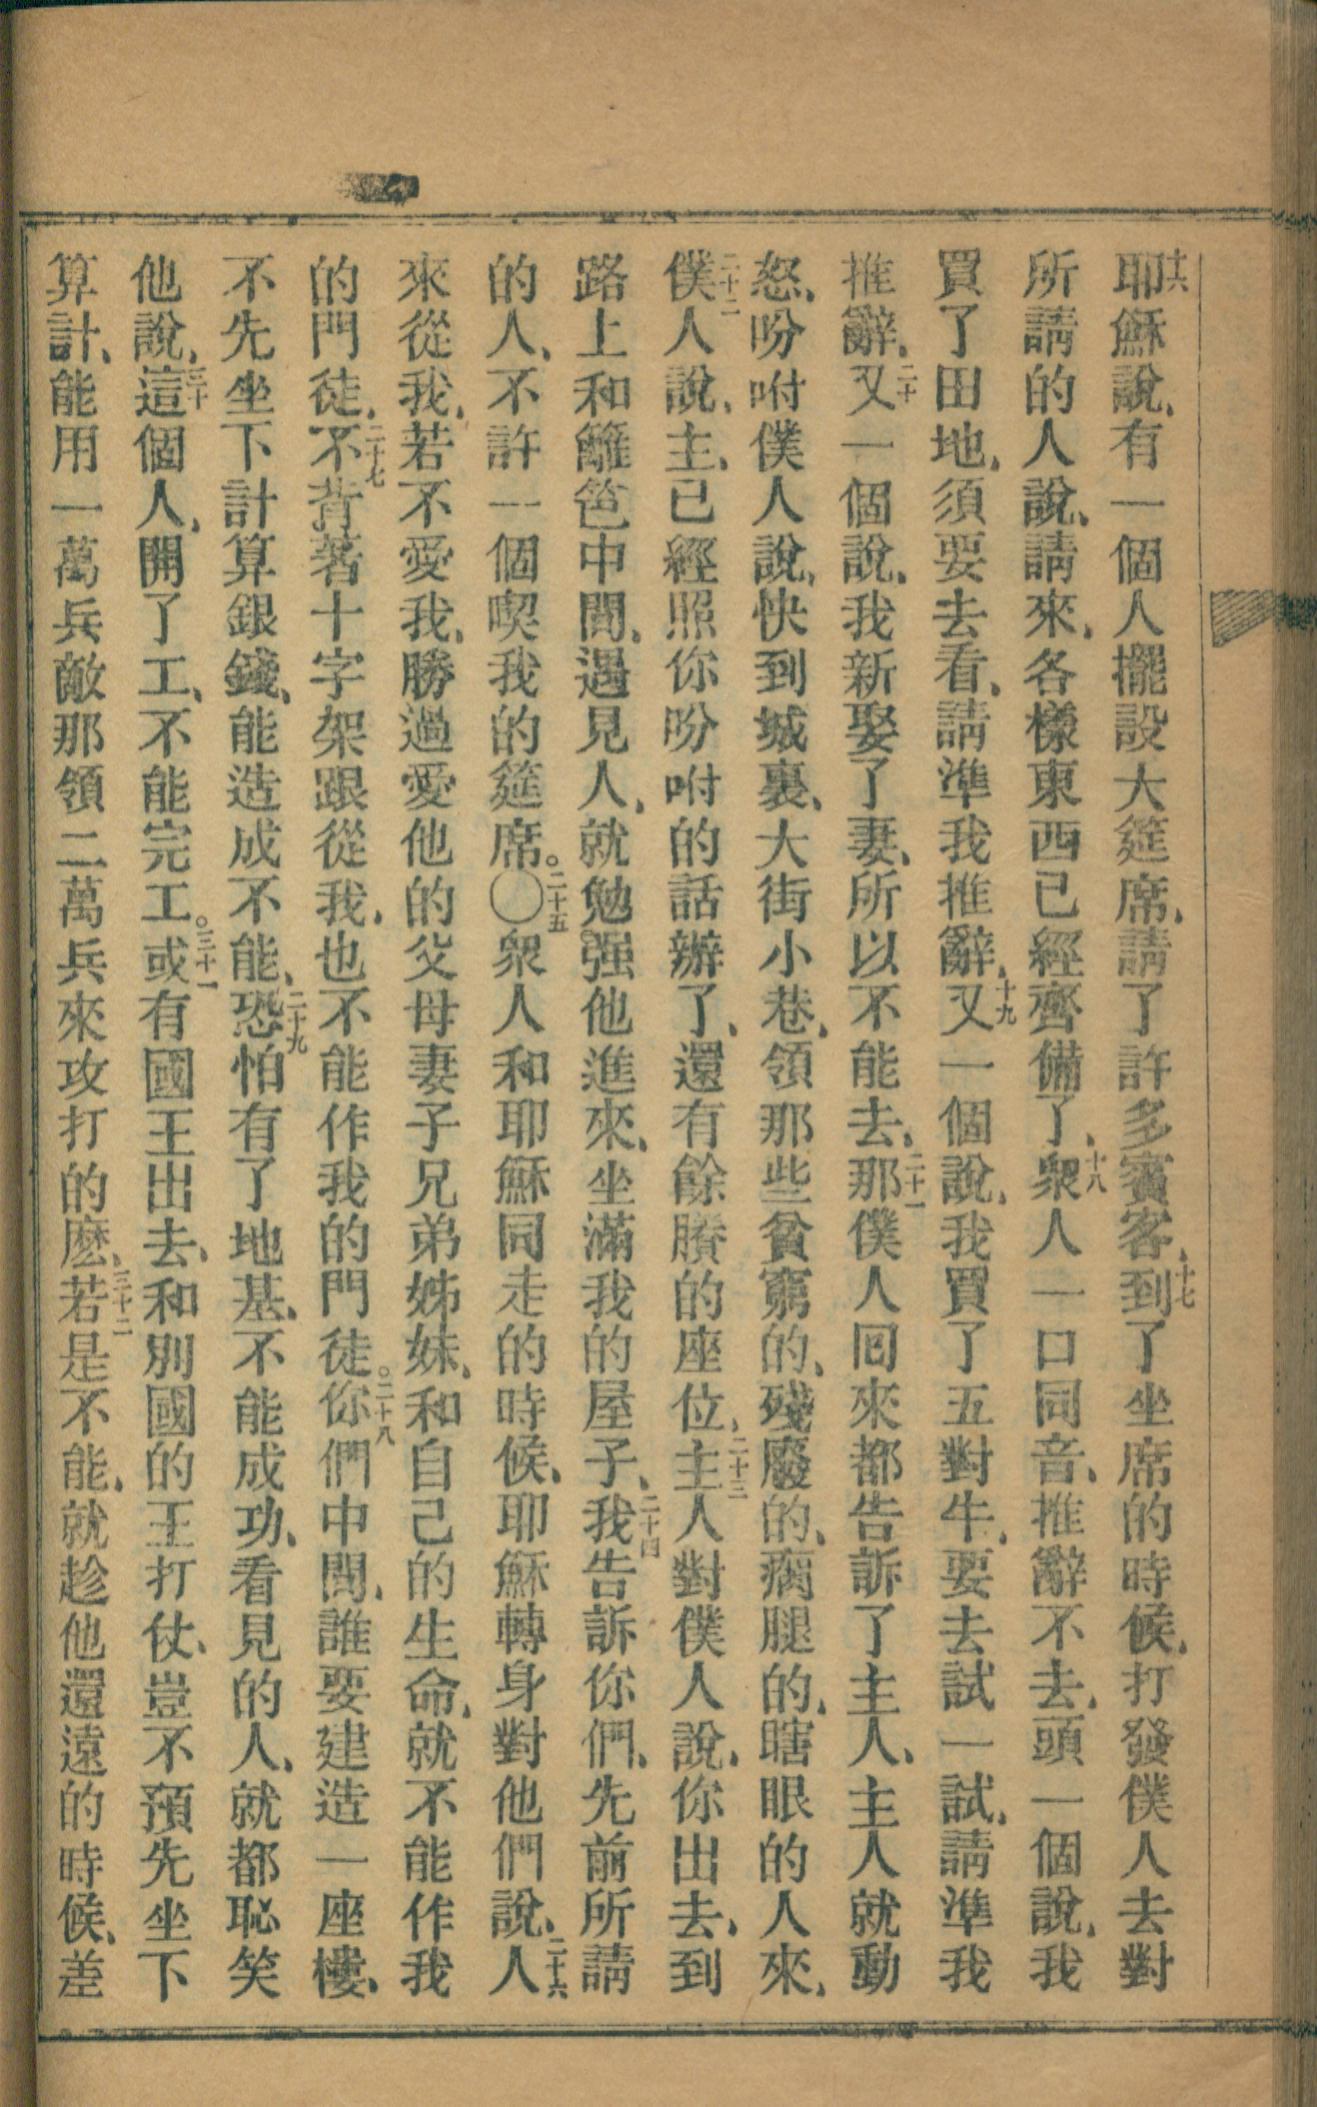 十六耶穌說、有一個人擺設大筵席、請了許多賓客、十七到了坐席的時候、打發僕人去對
所請的人說、請來、各樣東西已經齊備了、十八衆人一口同音、推辭不去、頭一個說、我
買了田地、須要去看、請準我推辭、十九又一個說、我買了五對牛、要去試一試、請準我
推辭、二十又一個說、我新娶了妻、所以不能去、二十一那僕人囘來都告訴了主人、主人就動
怒、吩咐僕人說、快到城裏、大街小巷、領那些貧窮的、殘廢的、瘸腿的、瞎眼的人來、
二十二僕人說、主、已經照你吩咐的話辦了、還有餘賸的座位、二十三主人對僕人說、你出去、到
路上和籬笆中間、遇見人、就勉强他進來、坐滿我的屋子、二十四我告訴你們、先前所請
的人、不許一個喫我的筵席。〇二十五衆人和耶穌同走的時候、耶穌轉身對他們說、二十六人
來從我、若不愛我、勝過愛他的父母妻子兄弟姊妹、和自己的生命、就不能作我
的門徒、二十七不背著十字架跟從我、也不能作我的門徒。二十八你們中間、誰要建造一座樓、
不先坐下計算銀錢、能造成不能、二十九恐怕有了地基、不能成功、看見的人、就都恥笑
他說、三十這個人、開了工、不能完工。三十一或有國王出去、和別國的王打仗、豈不預先坐下
算計、能用一萬兵敵那領二萬兵來攻打的麽、三十二若是不能、就趁他還遠的時候、差